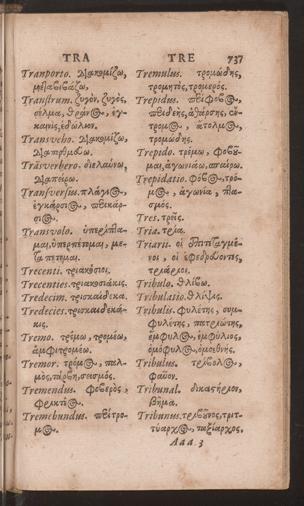 TRA
TRE 737
Transporto. Διακομίζω,
μεταβιβάζω,
Transtrum. ζυγὸν, ζυγὸς,
σέλμα, θρᾶνος, ἐγ-
κανὶς, ἑδώλιον.
Transveho. διακομίζω,
Transverbero. διελαύνω,
διαπείρω.
Transversus. πλάγιος,
ἐγκάρσιος, ἐπικάρ-
σιος.
Transvolo. ὑπερίπτα-
μαι, ὑπερπέτομαι, με-
Trecenti. τριακόσιοι.
Trecenties. τριακοσιάκις.
Tredecim. τρισκαίδεκα.
Tredecies. τρισκαιδεκά-
κις.
Tremo. τρέμω, τρομέω,
ἀμφιτρομέω.
Tremor. τρόμος, παλ-
μὸς, σεισμός.
Tremendus. φοβερὸς,
φρικτὸς.
Tremebundus. περίτρο-
μος.
Tremulus. τρομώδης,
τρομητὸς, τρομερός.
Trepidus. περίφοβος,
περιδεὴς, ἀθαρσὴς, ἔν-
τρομος, ἄτολμος,
τρομώδης.
Trepido. τρέμω, φοβοῦ-
μαι, ἀγωνιάω, σπαίρω.
Trepidatio. φόβος, τρό-
μος, ἀγωνία,
Tres. τρεῖς.
Tria. τρία.
Triarii. οἱ ἐπιτεταγμέ-
νοι, οἱ ἐφεδρεύοντες,
τριάριοι.
Tribulo. θλίβω.
Tribulatio. θλίψις.
Tribulis. φυλέτης, συμ-
φυλέτης, πατριώτης,
ἔμφυλος, ἐμφύλιος,
ὁμόφυλος, ὁμοεθνής.
Tribulus. τρίβολος,
Tribunal. δικαστήριον,
βῆμα.
Tribunus. τριβοῦνος, τριτ-
τύαρχος, ταξίαρχος,
Aaa 3